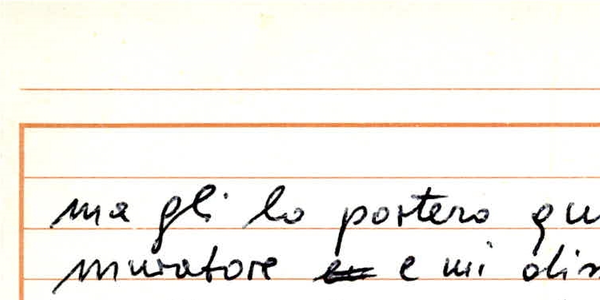 ma gli lo portero qu
muratore e mi